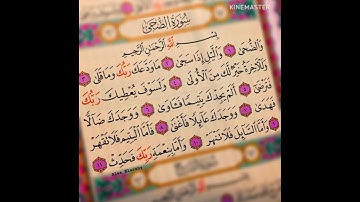 KINEMASTER
سُورَةُ الضُّحَىٰ
بِسْمِ اللَّهِ الرَّحْمَٰنِ الرَّحِيمِ
وَالضُّحَىٰ ١ وَالَّيْلِ إِذَا سَجَىٰ ٢ مَا وَدَّعَكَ رَبُّكَ وَمَا قَلَىٰ ٣
وَلَلْآخِرَةُ خَيْرٌ لَّكَ مِنَ الْأُولَىٰ ٤ وَلَسَوْفَ يُعْطِيكَ رَبُّكَ
فَتَرْضَىٰ ٥ أَلَمْ يَجِدْكَ يَتِيمًا فَآوَىٰ ٦ وَوَجَدَكَ ضَالًّا
فَهَدَىٰ ٧ وَوَجَدَكَ عَائِلًا فَأَغْنَىٰ ٨ فَأَمَّا الْيَتِيمَ فَلَا تَقْهَرْ ٩
وَأَمَّا السَّائِلَ فَلَا تَنْهَرْ ١٠ وَأَمَّا بِنِعْمَةِ رَبِّكَ فَحَدِّثْ ١١